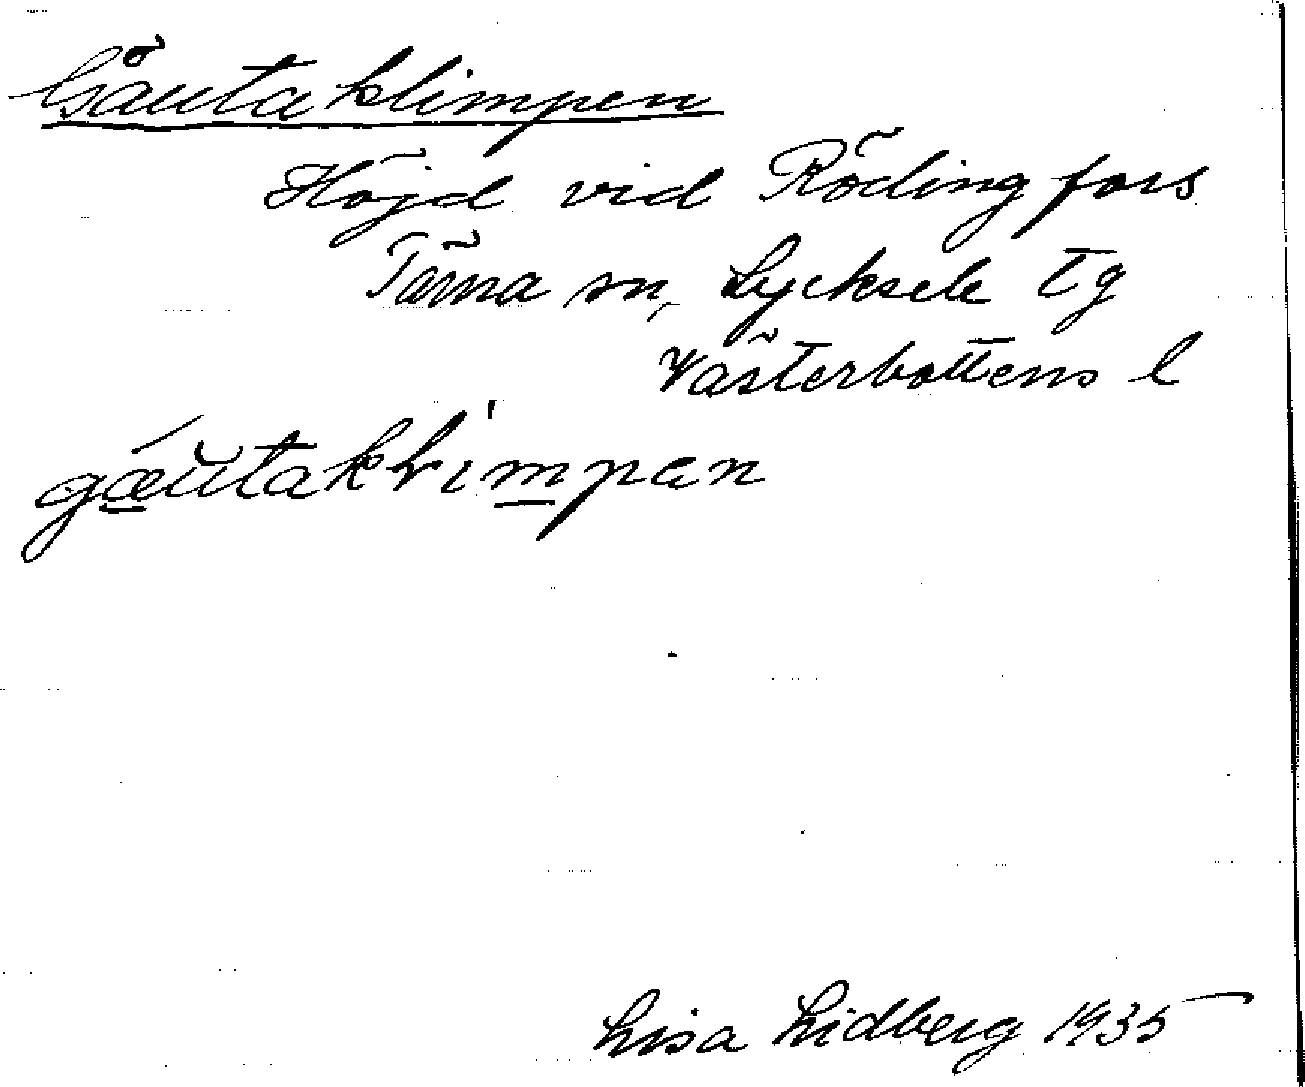 Gåutaklimpen
Höjd vid Rödingfors
Tärna sn, Lycksele tg
Västerbottens l
gǽ̲ŭtaklim̲pan
Lisa Lidberg 1935